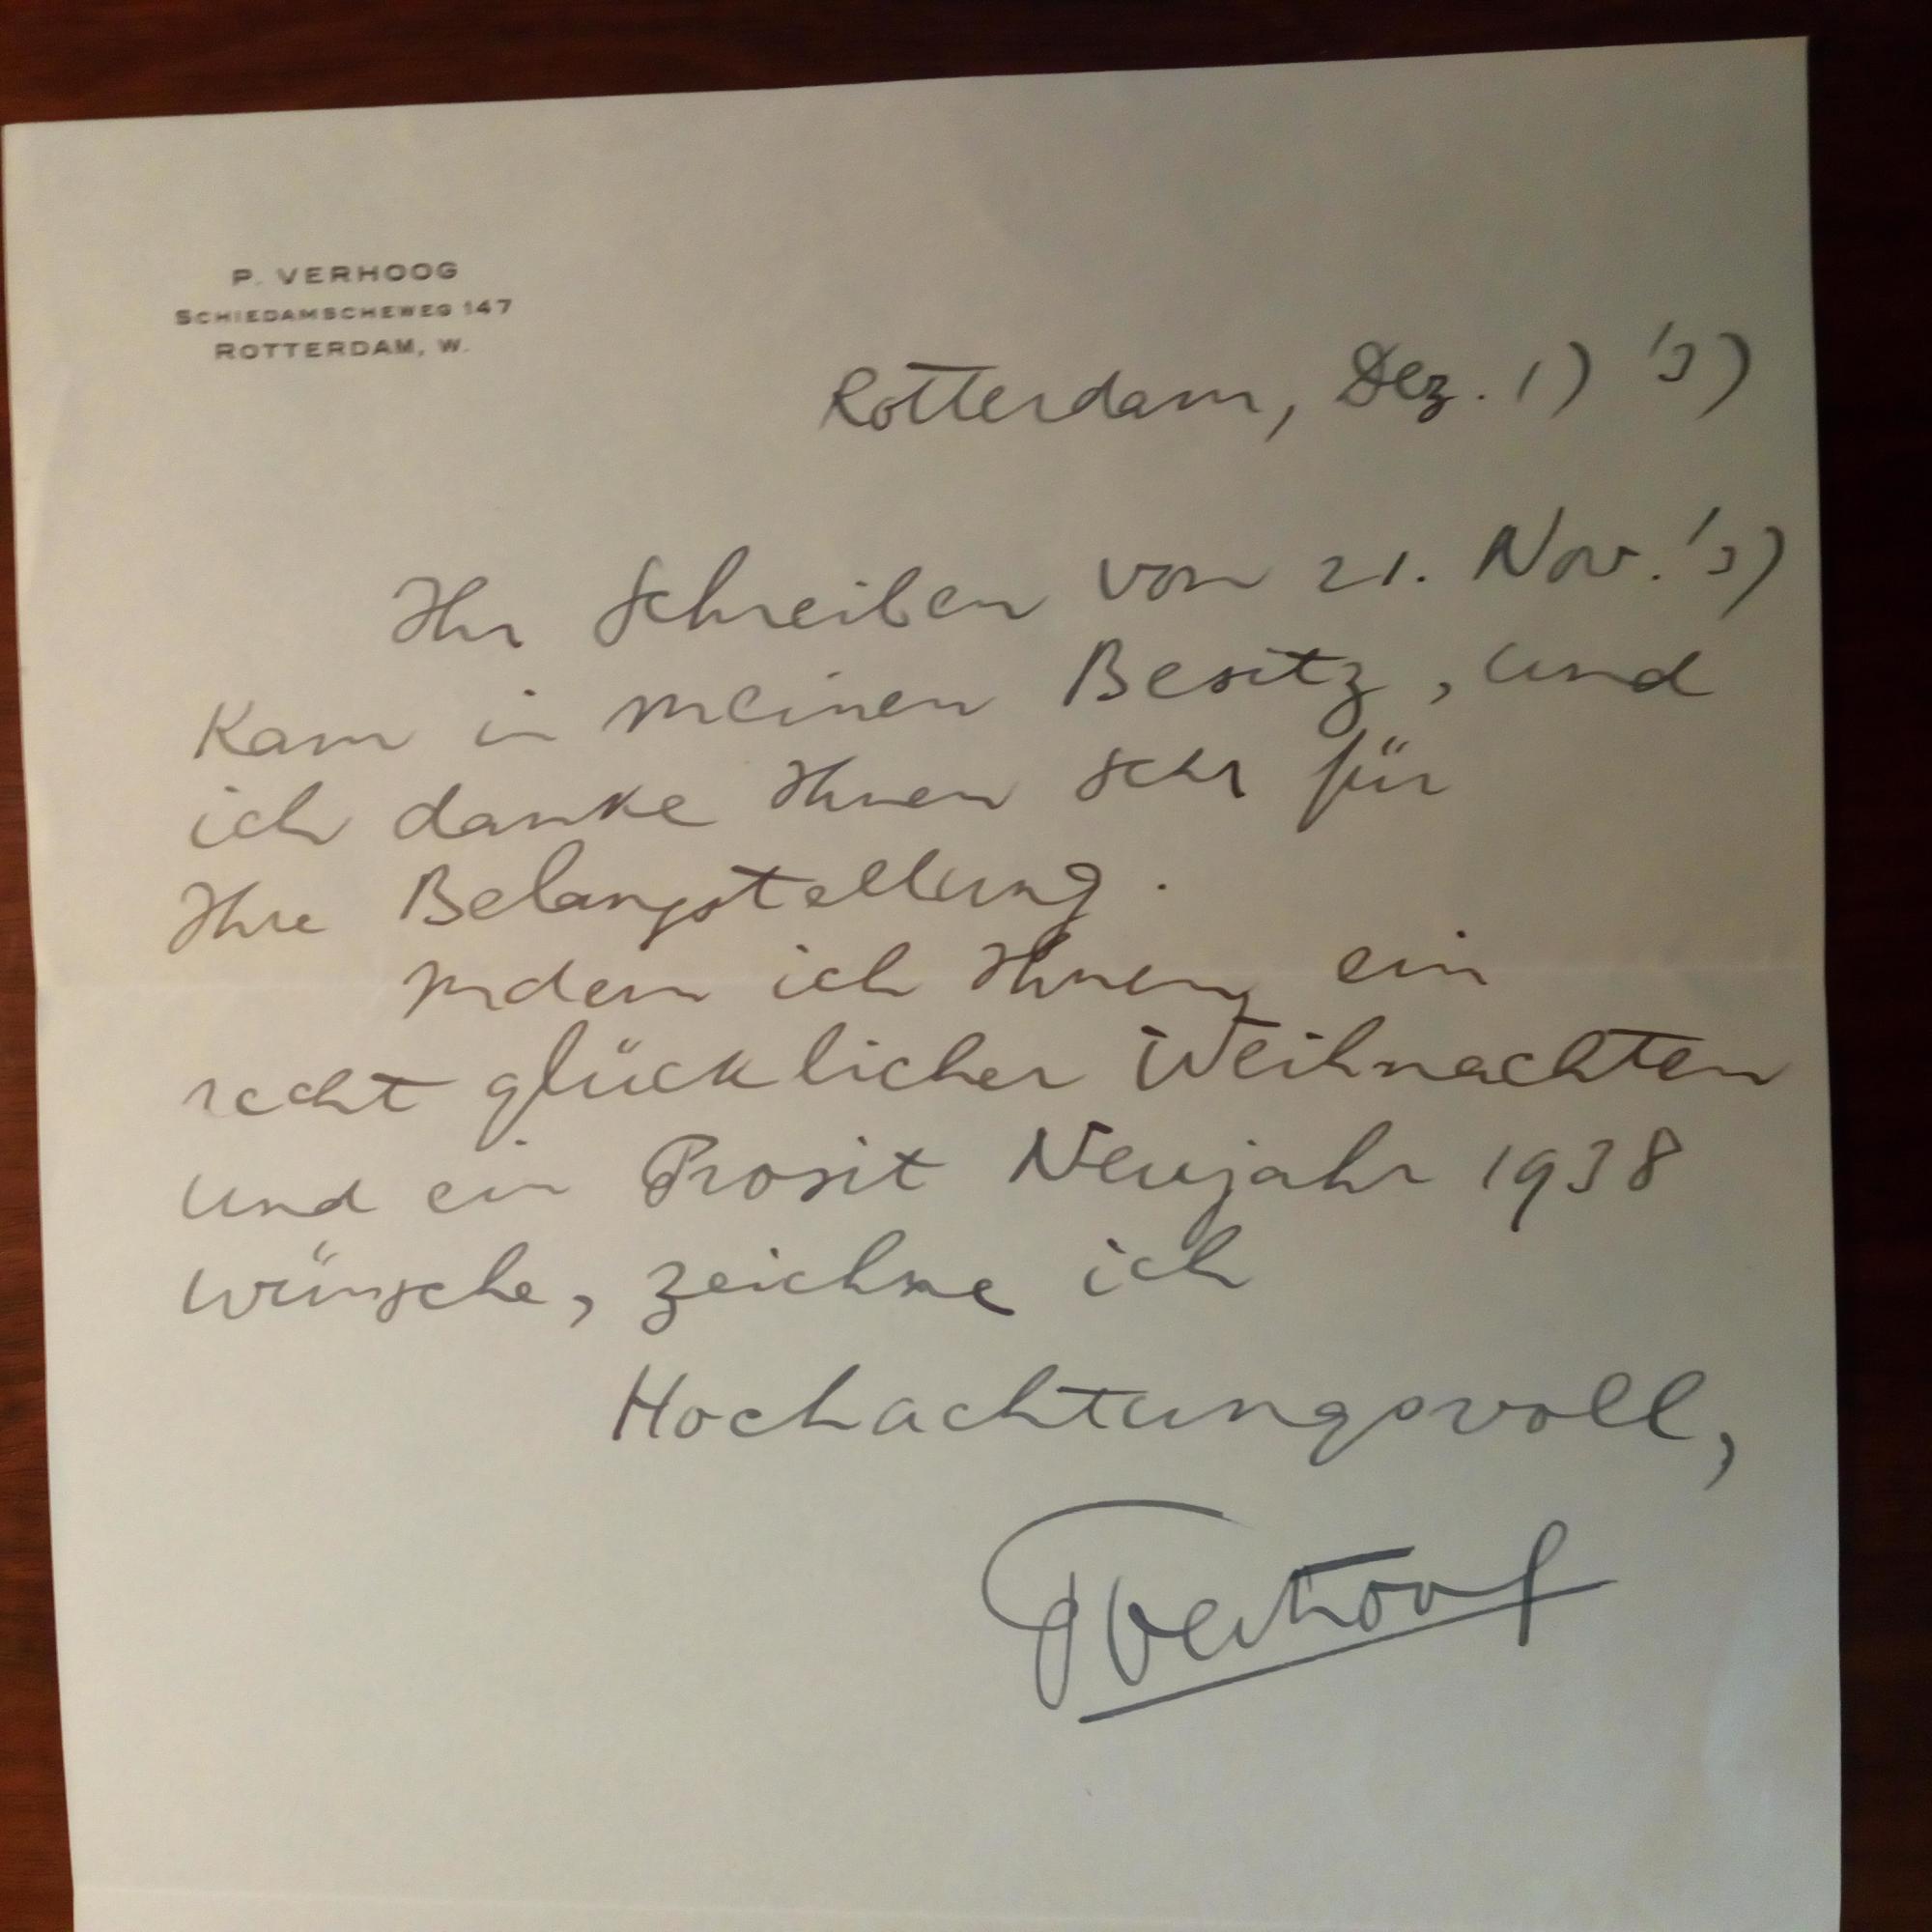 P. VERHOOG
SCHIEDAMSCHEWEG 147
ROTTERDAM, W.
Rotterdam, Dez. 17 '37
Ihr Schreiben vom 21. Nov. '37
kam in meinen Besitz, und
ich danke Ihnen sehr für
Ihre Belangstellung.
Indem ich Ihnen ein
recht glücklicher Weihnachten
und ein Prosit Neujahr 1938
wünsche, zeichne ich
Hochachtungsvoll,
PVerhoog